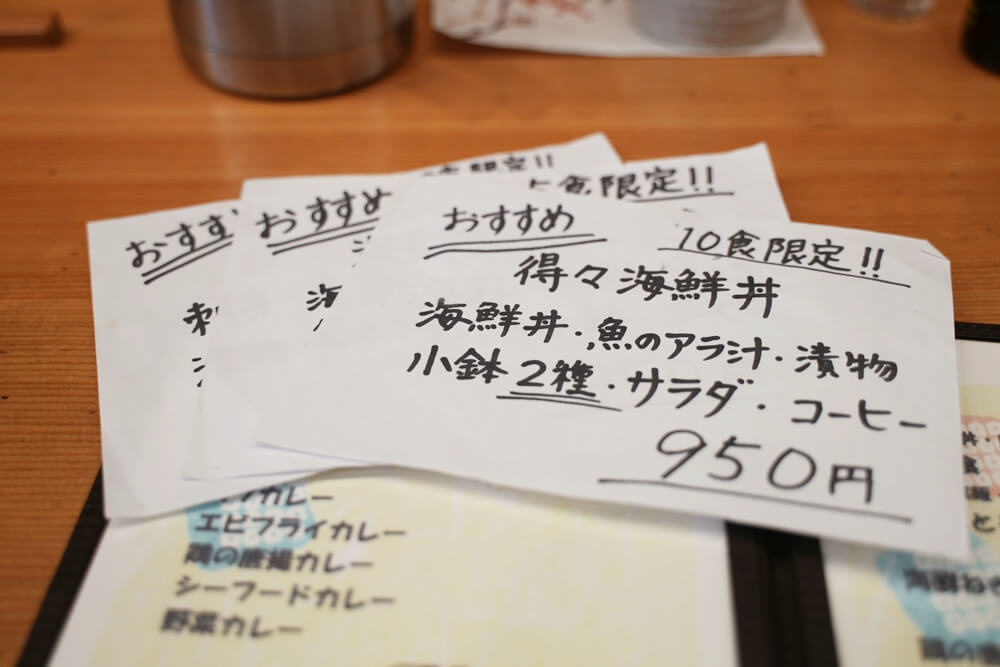 おすすめ
10食限定!!
得々海鮮丼
海鮮丼・魚のアラ汁・漬物
小鉢2種・サラダ・コーヒー
950円
おすすめ
食限定!!
海
おすす
限定!!
刺
カレー
エビフライカレー
鶏の唐揚カレー
シーフードカレー
野菜カレー